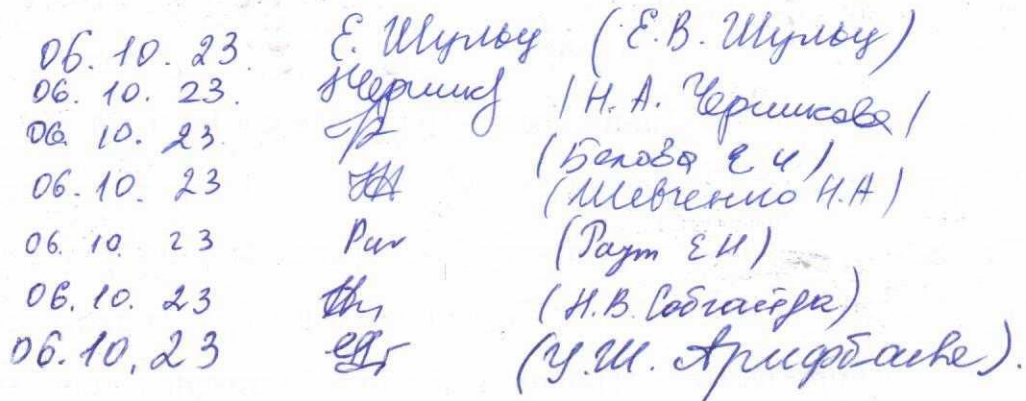 06. 10. 23. Е. Шульц (Е.В. Шульц)
06. 10. 23. /Н. А. Черникова/
06. 10. 23. (Белова Е И)
06. 10. 23 (Шевченко Н.А)
06. 10. 23 (Раут Е Н)
06. 10. 23 (Н.В. Собгайда)
06. 10, 23 (У.Ш. Арифбаева).